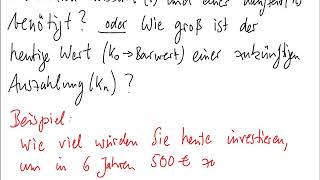 benötigt? oder Wie groß ist der
heutige Wert (K₀ → Barwert) einer zukünftigen
Auszahlung (Kn) ?
Beispiel:
Wie viel würden Sie heute investieren,
um in 6 Jahren 500 € zu